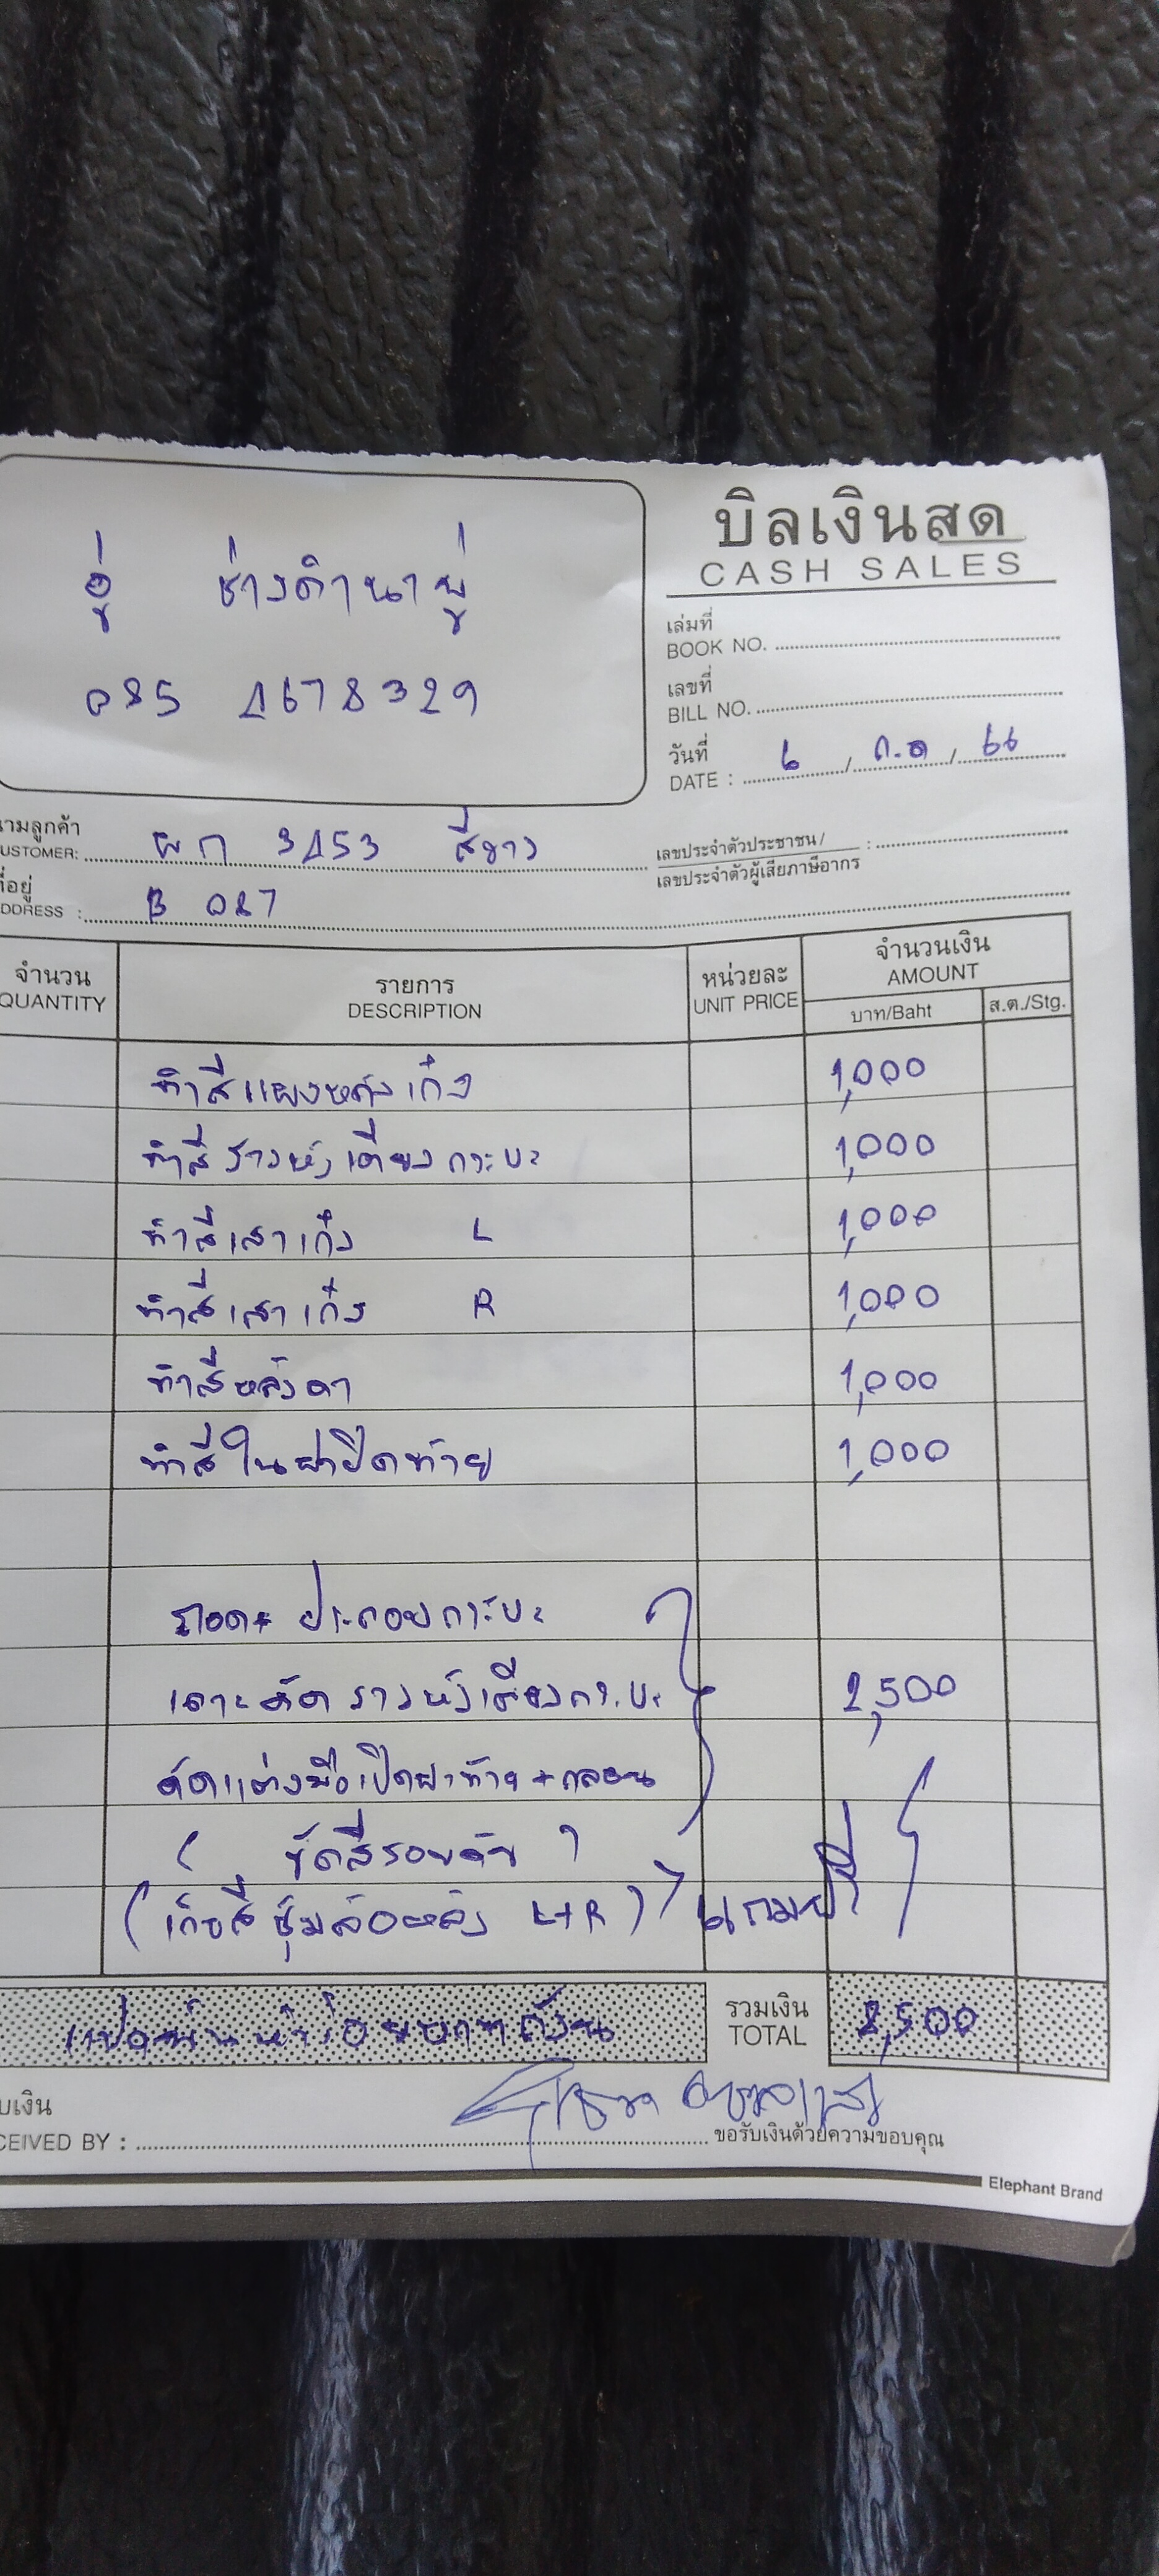 บิลเงินสด
CASH SALES
อู่ ช่างดำนาพู่
085 4678329
เล่มที่
BOOK NO.
เลขที่
BILL NO.
วันที่
DATE : 6 / ก.ค / 66
นามลูกค้า
CUSTOMER: ผก 3453 สีขาว
เลขประจำตัวประชาชน /
เลขประจำตัวผู้เสียภาษีอากร :
ที่อยู่
ADDRESS : B 027
จำนวน
QUANTITY
รายการ
DESCRIPTION
หน่วยละ
UNIT PRICE
จำนวนเงิน
AMOUNT
บาท/Baht
ส.ต./Stg.
ทำสีแผงหลังเก๋ง 1,000
ทำสีรางหัวเตียงกระบะ 1,000
ทำสีเสาเก๋ง L 1,000
ทำสีเสาเก๋ง R 1,000
ทำสีหลังคา 1,000
ทำสีในฝาปิดท้าย 1,000
ถอด+ประกอบกระบะ
เคาะดัดรางหัวเตียงกระบะ 2,500
ดัดแต่งมือเปิดฝาท้าย+กลอน
( ขัดสีรอบคัน )
(เก็บสีซุ้มล้อหลัง L+R) แถมฟรี
รวมเงิน
TOTAL 8,500
บเงิน
CEIVED BY :
ขอรับเงินด้วยความขอบคุณ
Elephant Brand